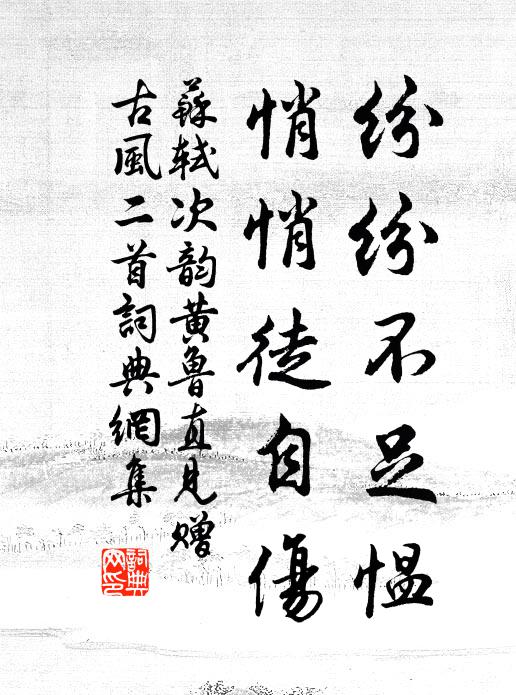 紛紛不足慍
悄悄徒自傷
蘇軾次韵黄魯直見贈
古風二首詞典網集
詞典
网印